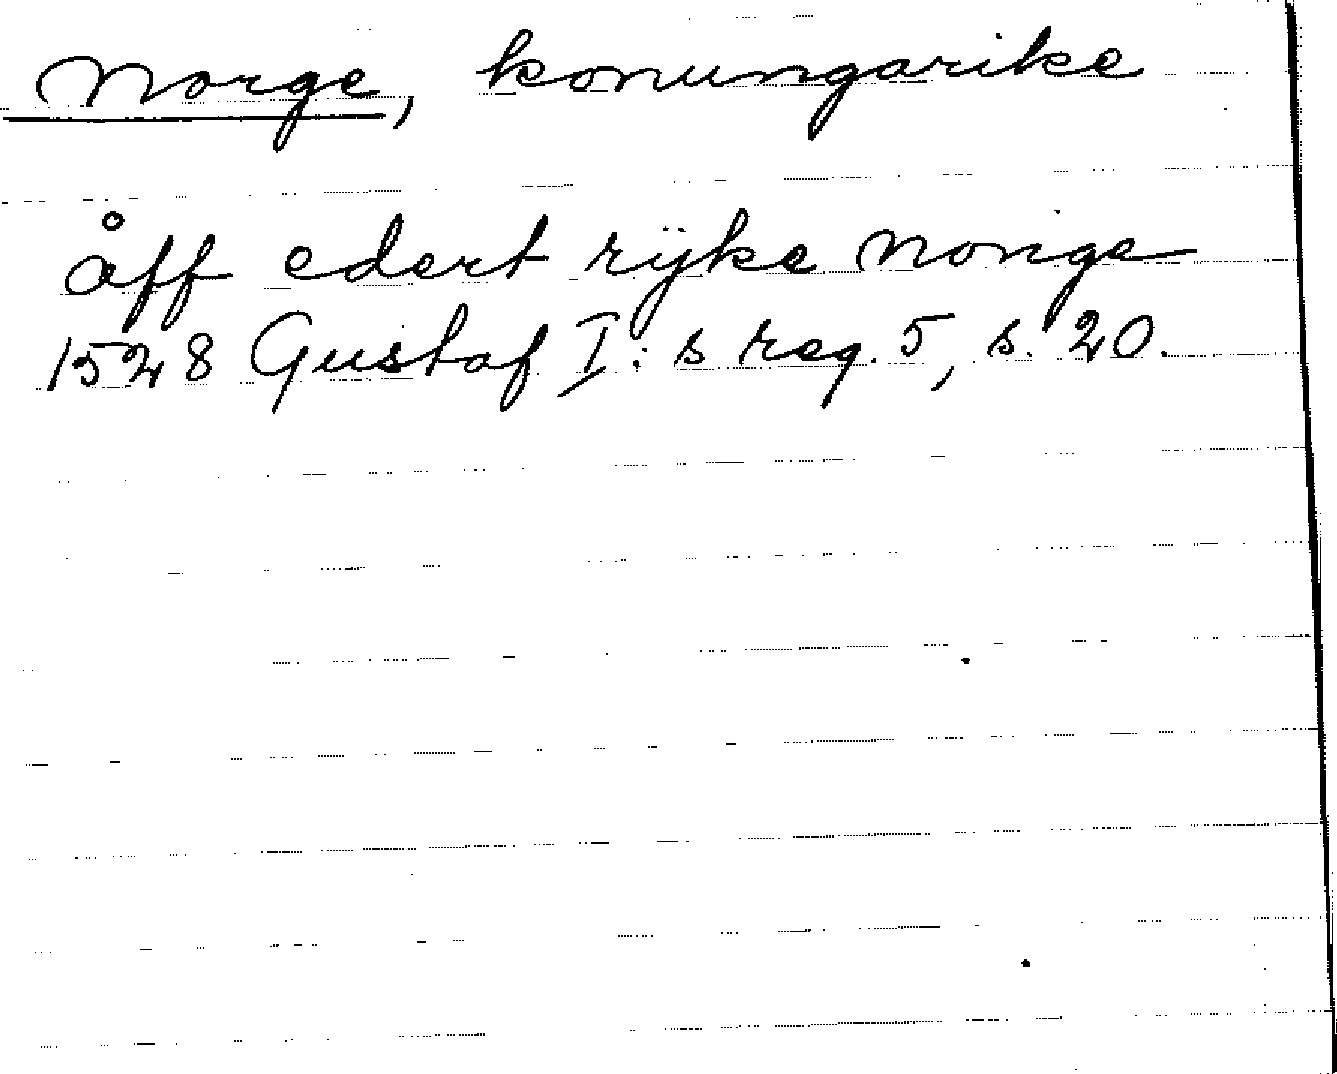 Norge, konungarike
åff edert rÿke Norige
1528 Gustaf I:s reg. 5, s. 20.